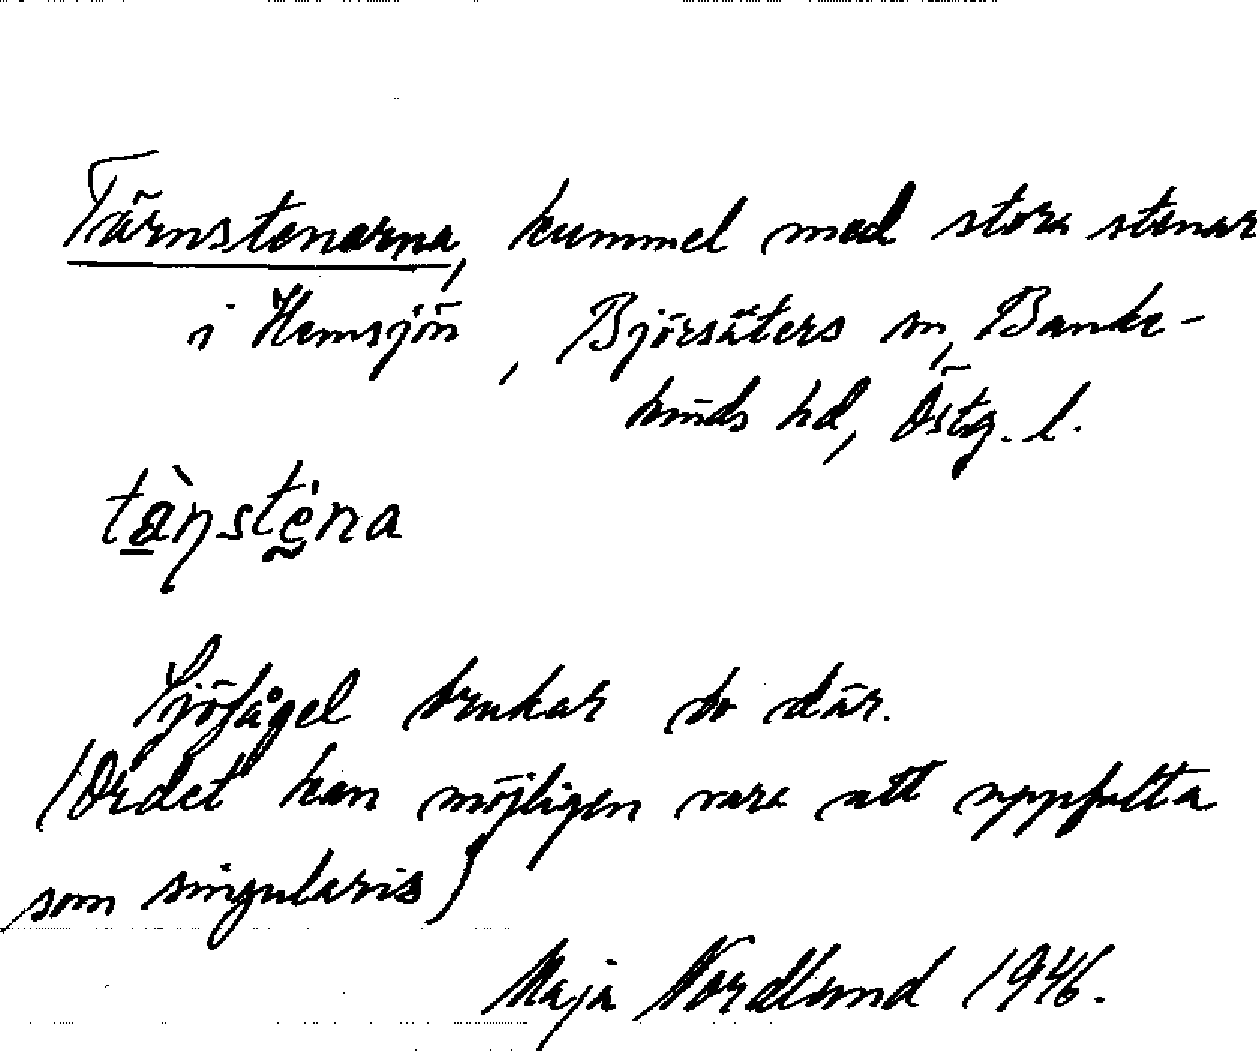 Tärnstenarna, kummel med stora stenar
i Hemsjön, Björsäters sn, Banke-
kinds hd, Östg. l.
tàṇsténa
Sjöfågel brukar bo där.
(Ordet kan möjligen vara att uppfatta
som singularis)
Maja Nordlund 1946.